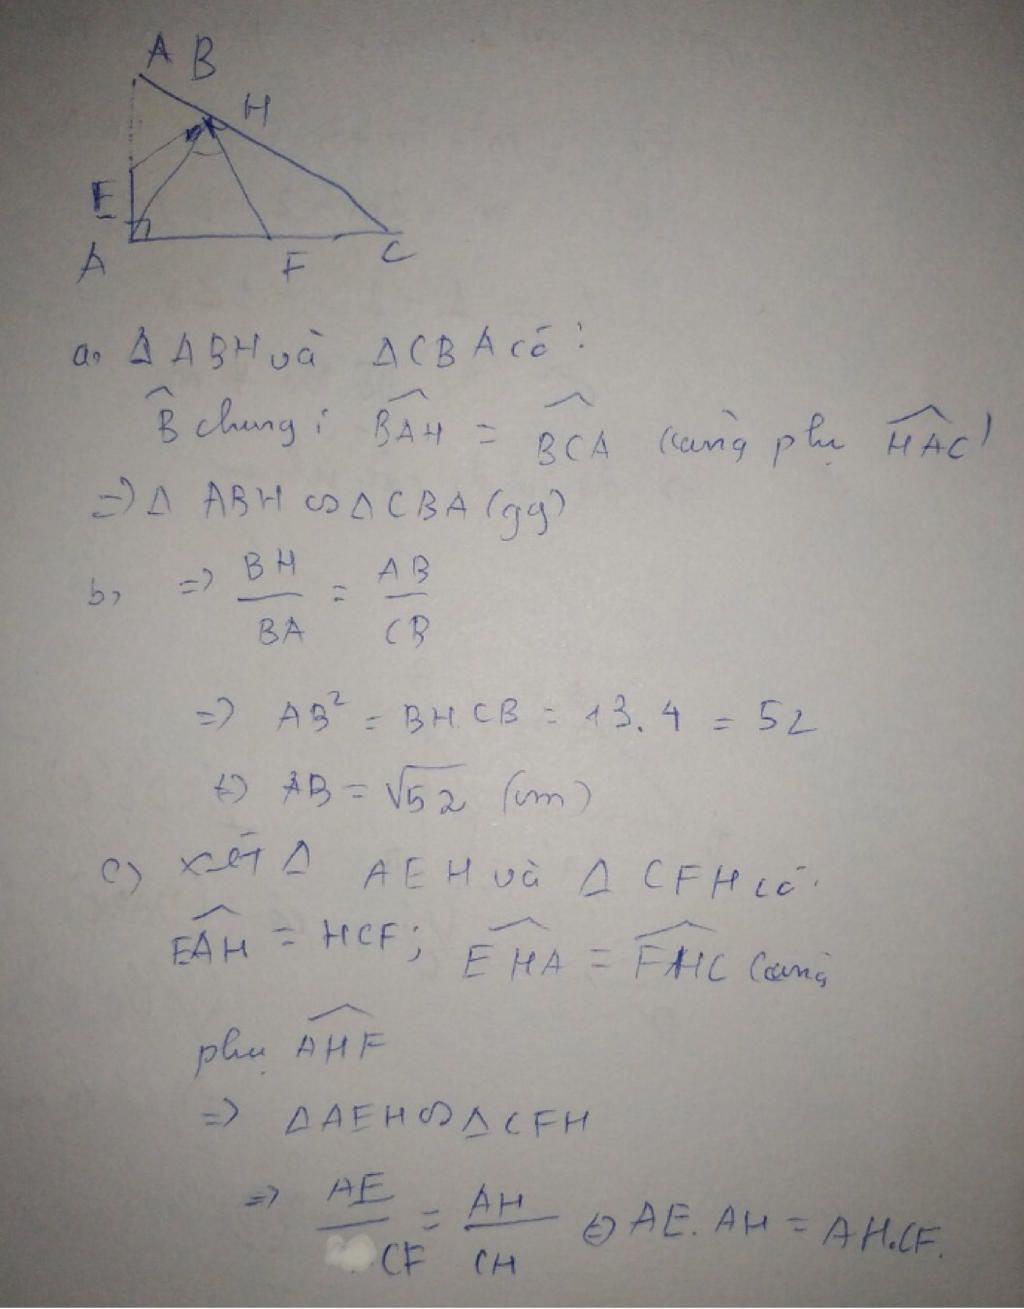 A B
H
E
A F C
a. Δ ABH và ΔCBA có:
B̂ chung; BAH = BCA (cùng phụ HAC)
=> Δ ABH ∽ Δ CBA (gg)
b, => BH/BA = AB/CB
=> AB² = BH.CB = 13.4 = 52
<=> AB = √52 (cm)
c) xét Δ AEH và Δ CFH có:
EAH = HCF; EHA = FHC (cùng
phụ AHF
=> ΔAEH ∽ Δ CFH
=> AE/CF = AH/CH <=> AE.AH = AH.CF.